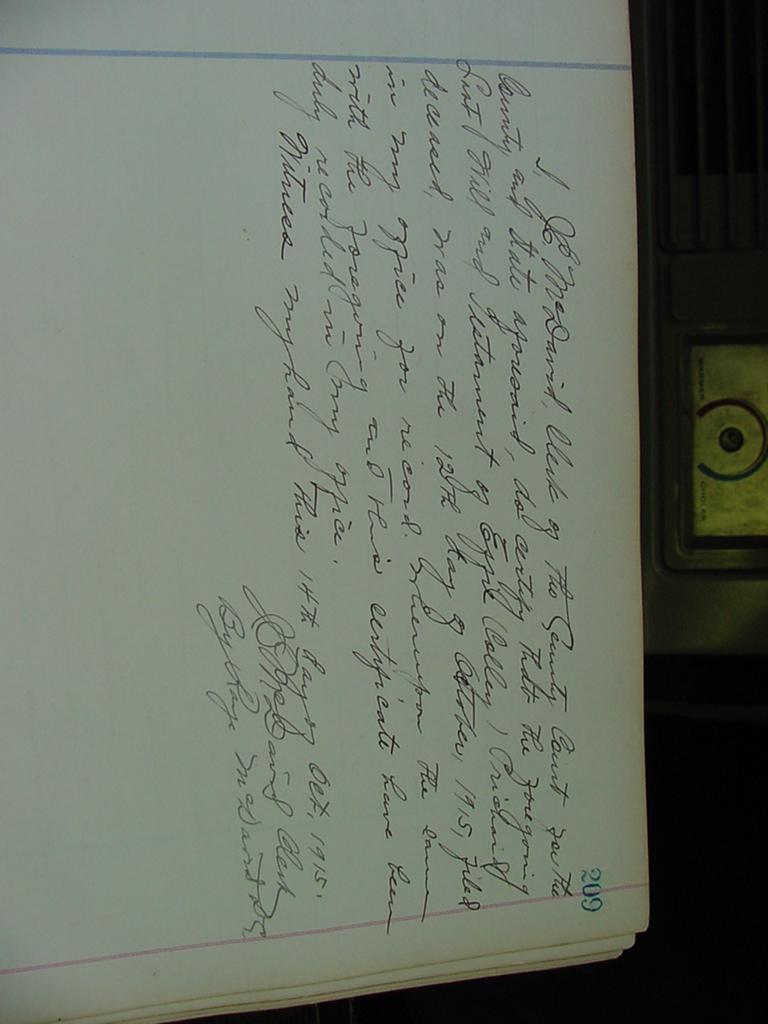 209
I, J.C. McDavid, Clerk of the County Court for the
County and State aforesaid, do certify that the foregoing
Last Will and Testament of Effie Colley Prichard
deceased, was on the 12th day of October, 1915, filed
in my office for record. Whereupon the same
with the foregoing and this certificate have been
duly recorded in my office.
Witness my hand this 14th day of Oct, 1915.
McDavid Clerk
By McDavid D.C.